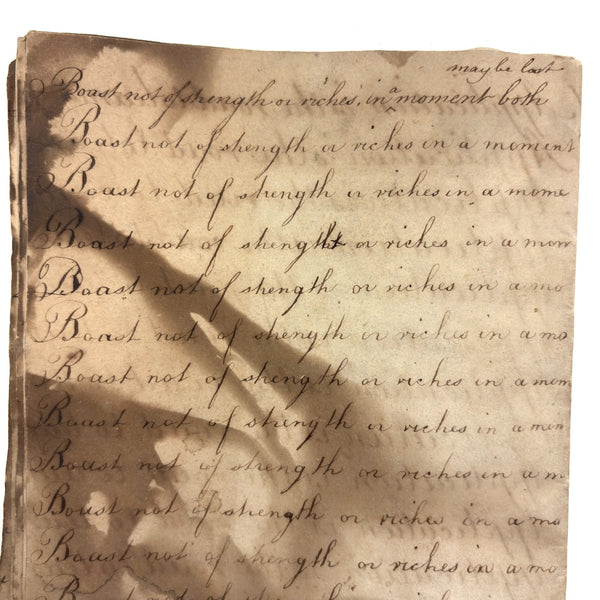 may be lost
Boast not of strength or riches, in a moment both
Boast not of strength or riches in a moment
Boast not of strength or riches in a mome
Boast not of strength or riches in a mom
Boast not of strength or riches in a mo
Boast not of strength or riches in a mo
Boast not of strength or riches in a mom
Boast not of strength or riches in a mom
Boast not of strength or riches in a m
Boast not of strength or riches in a mo
Boast not of strength or riches in a mo
Boast not of strength or riches in a